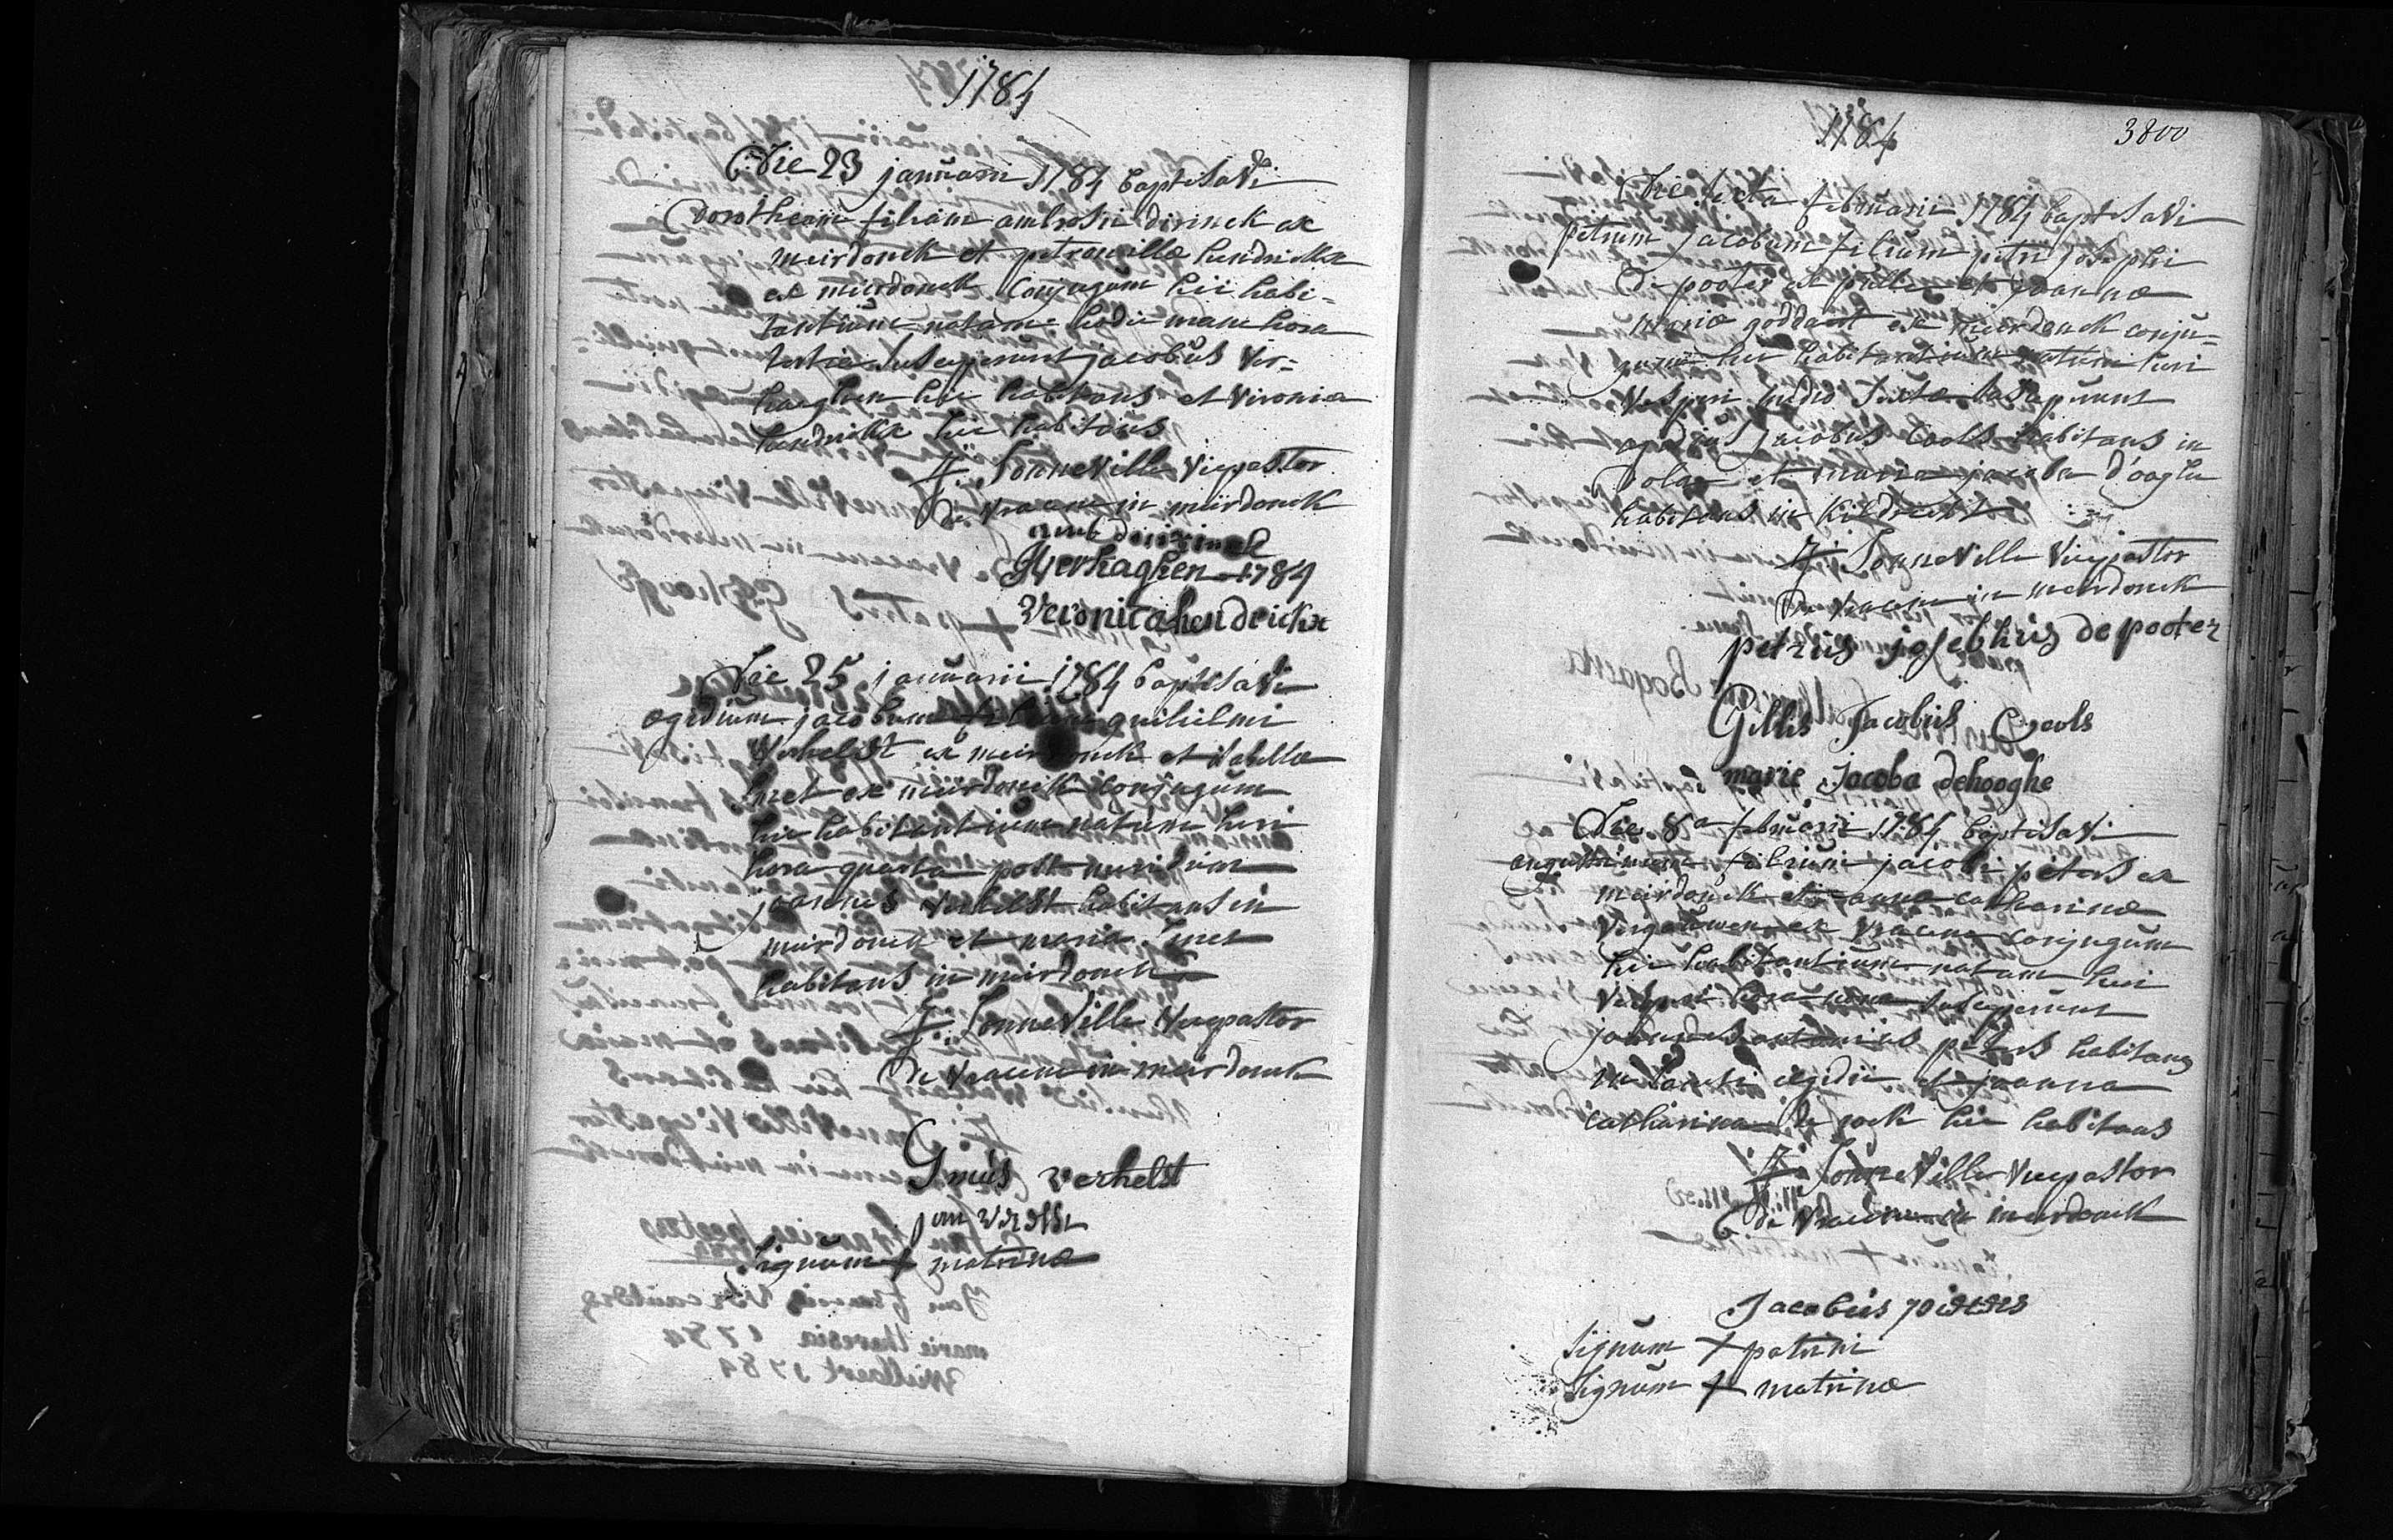 1784
Die 23 januarii 1784 baptisavi
dorotheam filiam ambrosii dirinck ex
meirdonck et petronillæ hendrickx
ex meirdonck conjugum hic habi=
tantium natam hodie mane hora
tertia susceperunt jacobus ver=
haeghen hic habitans et vironica
hendrickx hic habitans
F. Sonneville vicepastor
de vracene in meirdonck
amb
J verhaghen 1784
veronica hendrickx
Die 25 januarii 1784 baptisavi
ægidium jacobum filium guilielmi
verhelst ex meirdonck et isabellæ
smet ex meirdonck conjugum
hic habitantium natum heri
hora quarta post meridiem
joannes verhelst habitans in
meirdonck et maria smet
habitans in meirdonck
F. Sonneville vicepastor
de vracene in meirdonck
Gmus verhelst
jan verelst
Signum + matrinæ
1784
3800
Die sexta februarii 1784 baptisavi
petrum jacobum filium petri josephi
de pooter ex et joannæ
mariæ goddaert ex meirdonck conju=
gum hic habitantium natum heri
vesperi medio sextæ susceperunt
ægidius jacobus Cools habitans in
et maria jacoba d'ooghe
habitans in kildrecht
F. Sonneville vicepastor
de vracene in meirdonck
petrus josephus de pooter
Gillis Jacobus Cools
marie Jacoba dehooghe
Die 8a februarii 1784 baptisavi
augustinum filium jacobi peters ex
meirdonck et annæ catharinæ
vergauwen ex vracene conjugum
hic habitantium natum heri
vesperi hora nona susceperunt
joannes antonius peters habitans
in Sancti egidii et joanna
catharina de cock hic habitans
F. Sonneville vicepastor
de vracene in meirdonck
Jacobus peeters
Signum + patrini
Signum + matrinæ